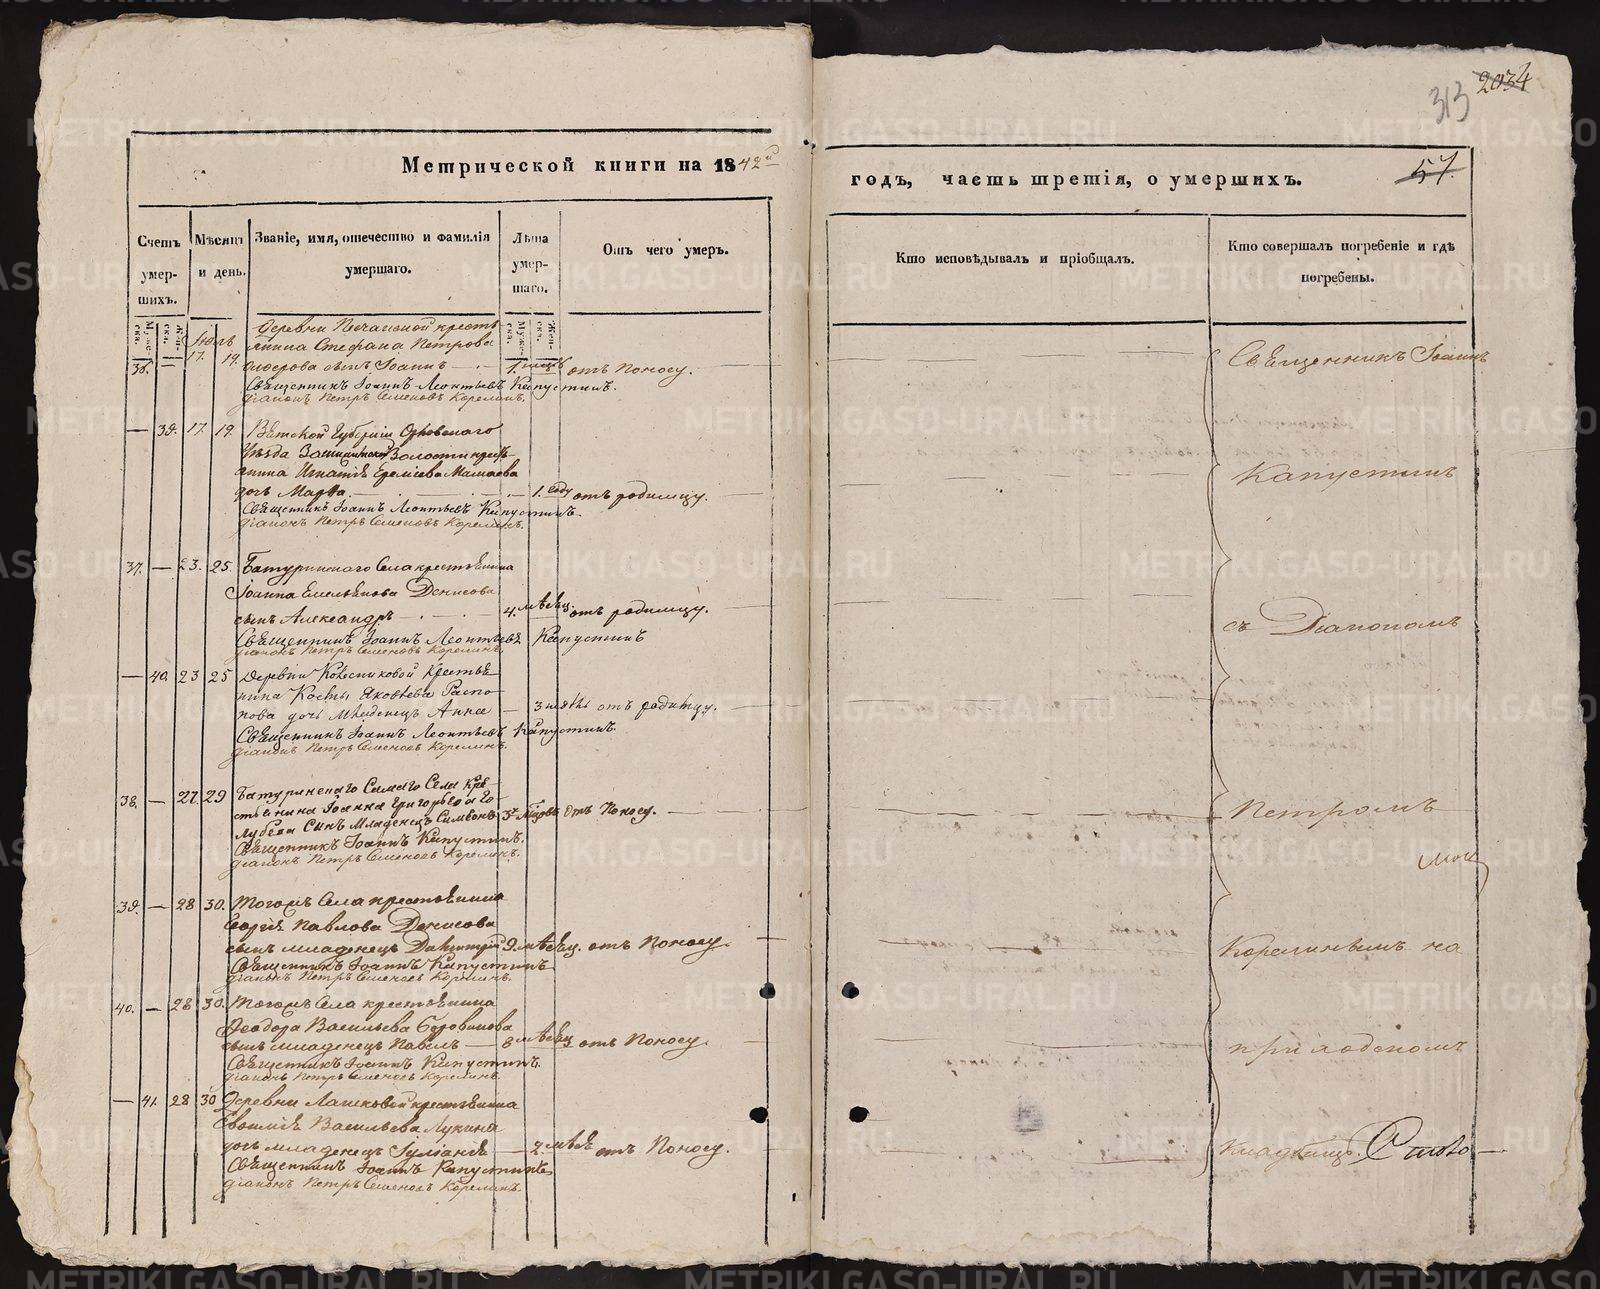 313 2034
Метрической книги на 1842й
годъ, часть третія, о умершихъ.
57.
Счетъ умер-шихъ.
Мѣсяцъ и день.
Званіе, имя, отечество и фамилія умершаго.
Лѣта умер-шаго.
Отъ чего умеръ.
Кто исповѣдывалъ и пріобщалъ.
Кто совершалъ погребеніе и гдѣ погребены.
Муже-ска. Жен-ска. Муже-ска. Жен-ска.
Іюль
Деревни Печанской кресть-
янина Стефана Петрова
36. — 17. 19. сынъ Іоаннъ — 1. отъ Поносу.
Священникъ Іоаннъ Леонтьевъ Капустинъ.
діаконъ Петръ Семеновъ Корелинъ.
— 39. 17. 19. Вятской Губерніи Орловскаго
Уѣзда Волости кресть-
янина Игнатія Еремѣева
дочь Марѳа. — 1. году отъ родимцу.
Священникъ Іоаннъ Леонтьевъ Капустинъ.
діаконъ Петръ Семеновъ Корелинъ.
37. — 23. 25. Батуринскаго Села крестьянина
Іоанна Емельянова Денисова
сынъ Александръ — 4. мѣсяц. отъ родимцу.
Священникъ Іоаннъ Леонтьевъ Капустинъ
діаконъ Петръ Семеновъ Корелинъ.
— 40. 23 25 Деревни Колесниковой Крестья-
нина Космы Яковлева Распо-
пова дочь Младенецъ Анна — 3 отъ родимцу.
Священникъ Іоаннъ Леонтьевъ Капустинъ.
діаконъ Петръ Семеновъ Корелинъ.
38. — 27. 29 Батуринскаго Самаго Села Кре-
стьянина Іоанна Григорьева Го-
лубева Сынъ Младенецъ Симеонъ 3х Отъ Поносу.
Священникъ Іоаннъ Капустинъ.
діаконъ Петръ Семеновъ Корелинъ.
39. — 28 30. Тогожъ Села крестьянина
Георгія Павлова Денисова
сынъ младенецъ Димитрій 9. мѣсяц. отъ Поносу.
Священникъ Іоаннъ Капустинъ
діаконъ Петръ Семеновъ Корелинъ.
40. — 28 30. Тогожъ Села крестьянина
Ѳеодора Васильева
сынъ младенецъ Павелъ — 8 мѣсяц отъ Поносу.
Священникъ Іоаннъ Капустинъ.
діаконъ Петръ Семеновъ Корелинъ.
— 41. 28 30 Деревни крестьянина
Евѳимія Васильева Лукина
дочь младенецъ Іуліанія — 2. мѣся отъ Поносу.
Священникъ Іоаннъ Капустинъ
діаконъ Петръ Семеновъ Корелинъ.
Священникъ Іоаннъ
Капустинъ
съ Діакономъ
Петромъ
Корелинымъ на
приходскомъ
кладбищѣ.
METRIKI.GASO-URAL.RU